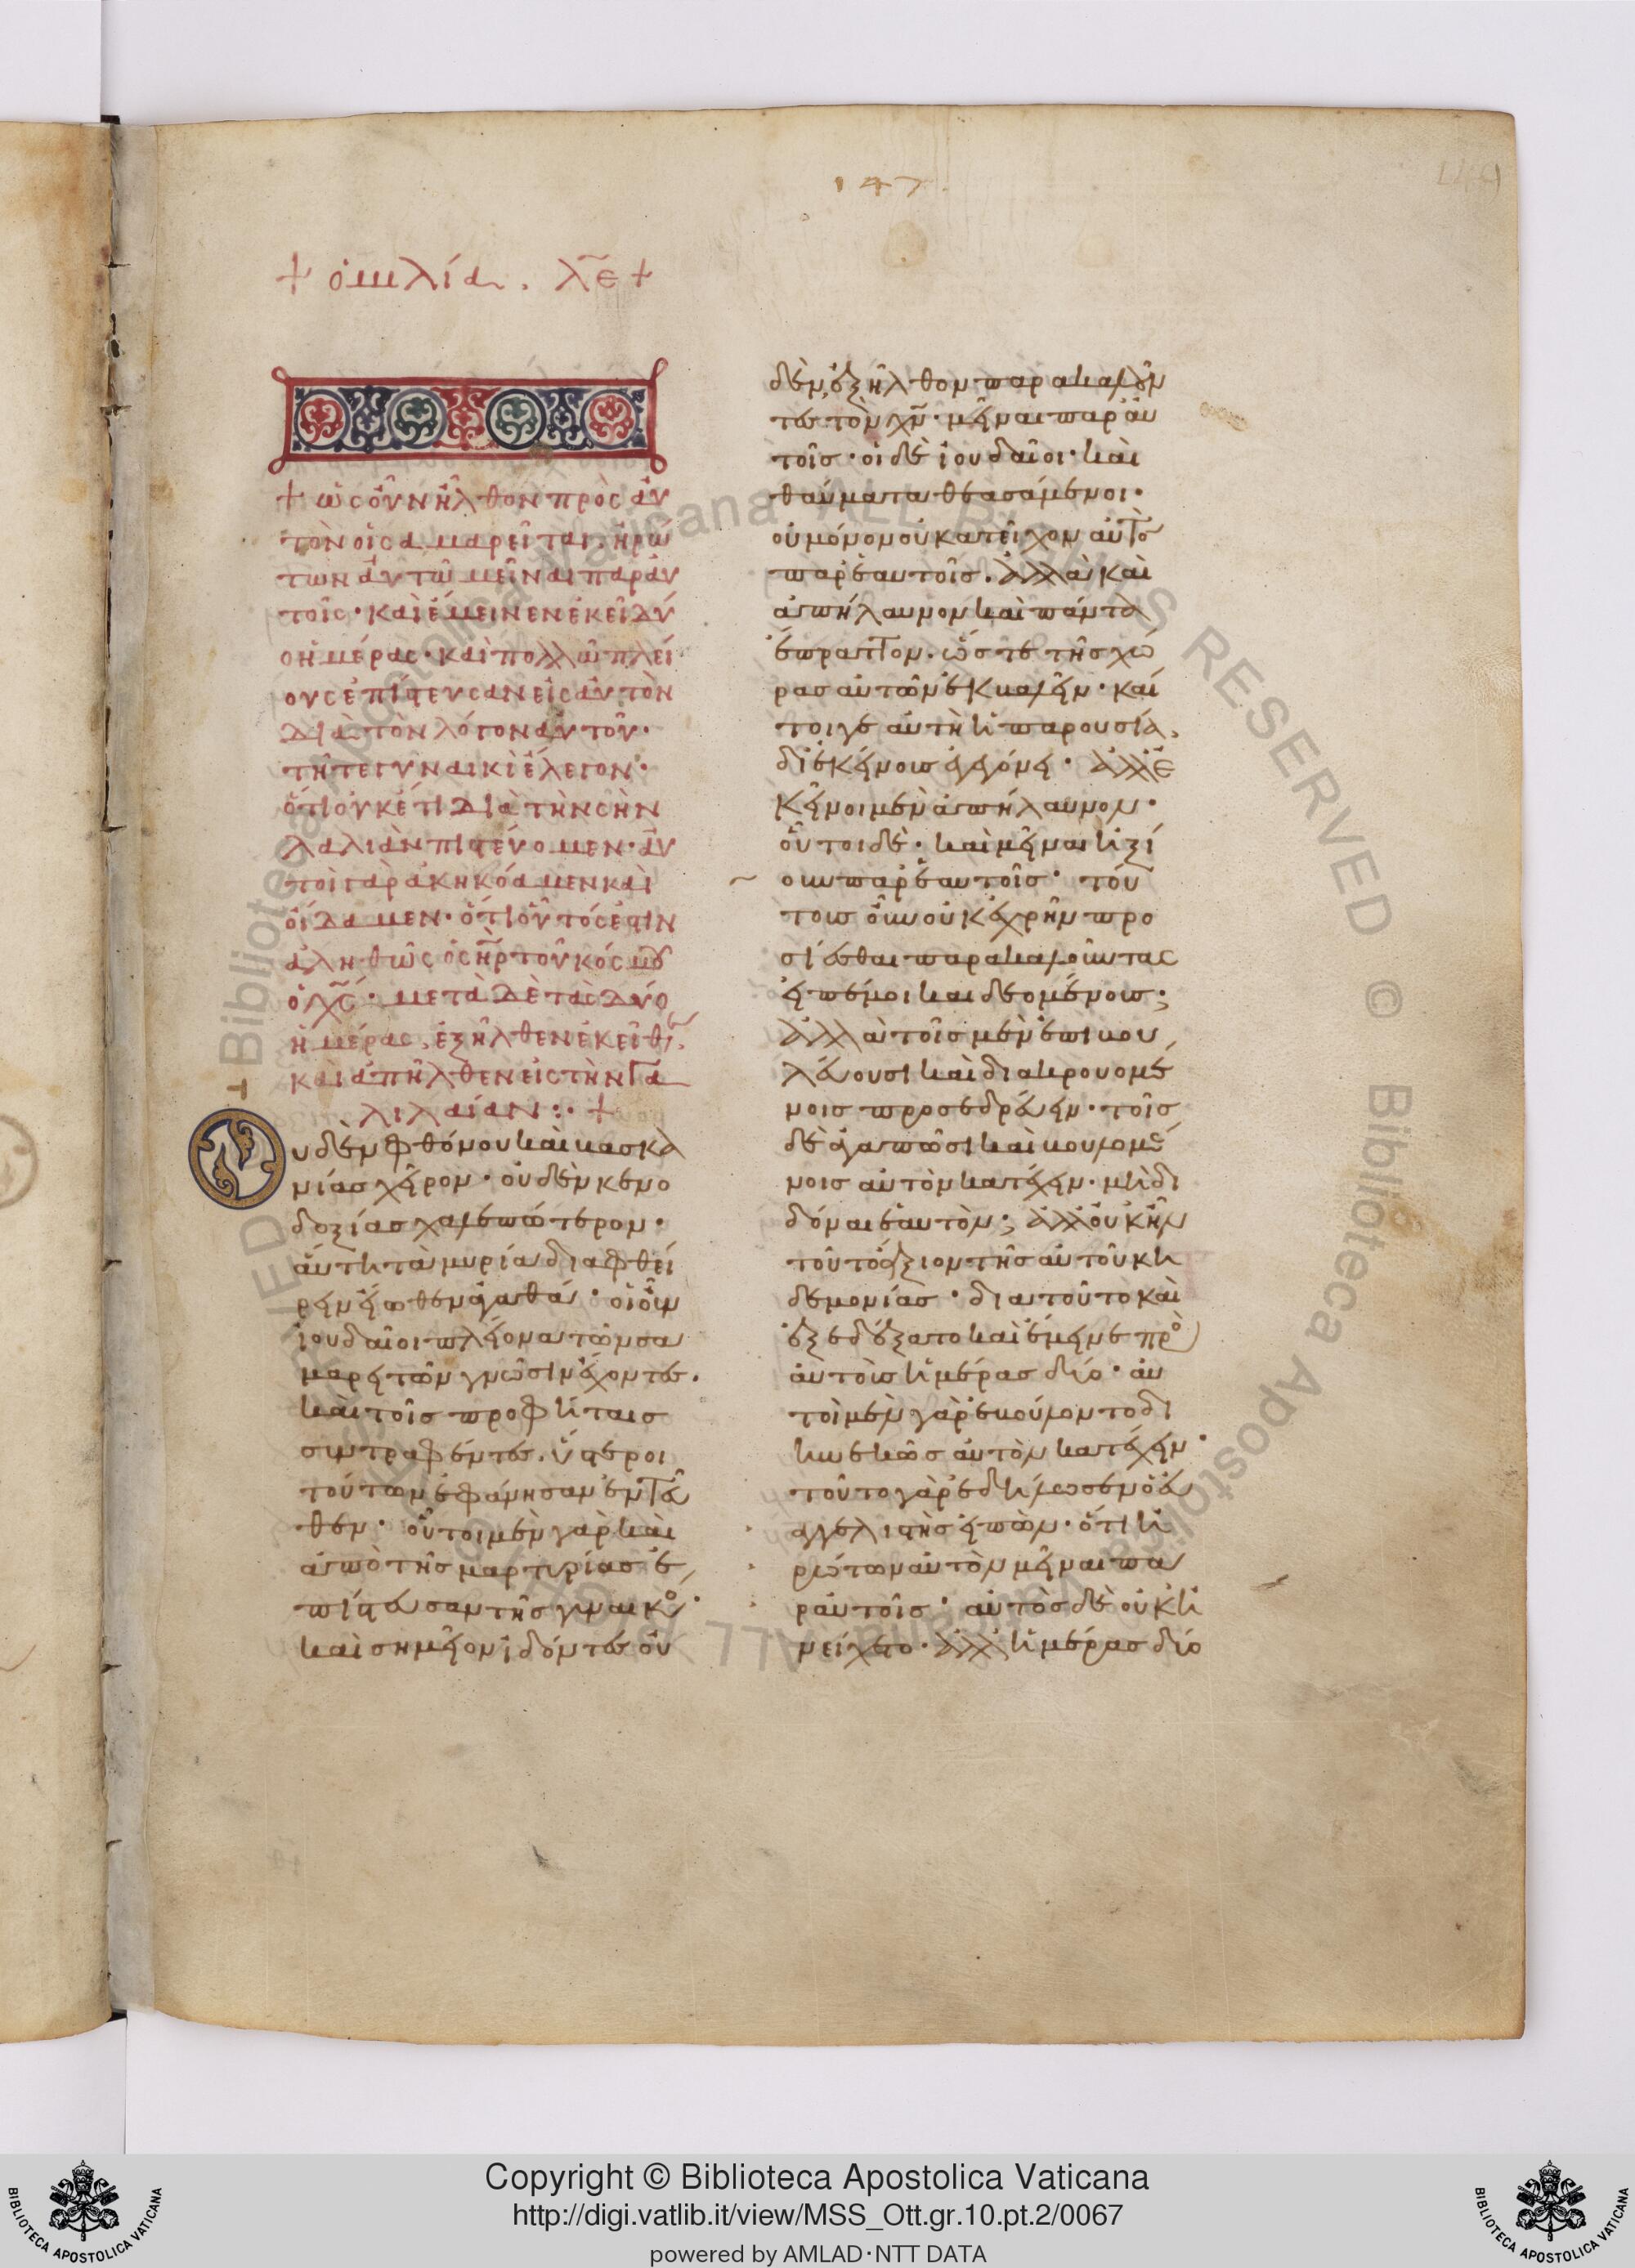 147.
+ ὁμιλία. λε +
+ ὡς οὖν ἦλθον πρὸς αὐ
τὸν οἱ σαμαρεῖται, ἠρώ
των αὐτῶ μεῖναι παρ' αὐ
τοῖς· καὶ ἔμεινεν ἐκεῖ δύ
ο ἡμέρας· καὶ πολλῶ πλεί
ους ἐπίστευσαν εἰς αὐτὸν
διὰ τὸν λόγον αὐτοῦ·
τῆ τε γυναικὶ ἔλεγον·
ὅτι οὐκέτι διὰ τὴν σὴν
λαλιὰν πιστεύομεν· αὐ
τοὶ γὰρ ἀκηκόαμεν καὶ
οἴδαμεν· ὅτι οὗτός ἐστιν
ἀληθῶς ὁ σηρ τοῦ κόσμου
ὁ χς· μετὰ δὲ τὰς δύο
ἡμέρας, ἐξῆλθεν ἐκεῖθεν,
καὶ ἀπῆλθεν εἰς τὴν Γα
λιλαίαν :· +
Ουδὲν φθόνου καὶ βασκα
νίας χεῖρον· οὐδὲν κενο
δοξίας χαλεπώτερον·
αὕτη τὰ μυρία διαφθεί
ρειν εἴωθεν ἀγαθά· οἱ οὖν
ἰουδαῖοι πλείονα τῶν σα
μαρειτῶν γνῶσιν ἔχοντες.
καὶ τοῖς προφήταις
συντραφέντες. ὕστεροι
τούτων ἐφάνησαν ἐντεῦ
θεν· οὗτοι μὲν γὰρ καὶ
ἀπὸ τῆς μαρτυρίας ἐ
πίστευσαν τῆς γυναικὸς·
καὶ σημεῖον ἰδόντες οὐ
δὲν, ἐξῆλθον παρακαλοῦν
τες τὸν χν· μεῖναι παρ' αὐ
τοῖς· οἱ δὲ ἰουδαῖοι· καὶ
θαύματα θεασάμενοι·
οὐ μόνον οὐ κατεῖχον αὐτὸν
παρ' ἑαυτοῖς. ἀλλὰ καὶ
ἀπήλαυνον καὶ πάντα
ἔπραττον. ὥστε τῆς χώ
ρας αὐτῶν ἐκβαλεῖν· καί
τοιγε αὐτὴ ἡ παρουσία,
δι' ἐκείνους ἐγένετο· ἀλλ' ἐ
κεῖνοι μὲν ἀπήλαυνον·
οὗτοι δὲ· καὶ μεῖναι ἠξί
ουν παρ' ἑαυτοῖς· τού
τους οὖν οὐκ ἐχρῆν προ
σίεσθαι παρακαλοῦντας
εἰπέ μοι καὶ δεομένους;
ἀλλὰ τοῖς μὲν ἐπιβου
λεύουσι καὶ διακρουομέ
νοις προσεδρεύειν· τοῖς
δὲ ἀγαπῶσι καὶ βουλομέ
νοις αὐτὸν κατέχειν· μὴ δι
δόναι ἑαυτὸν; ἀλλ' οὐκ ἦν
τοῦτο ἄξιον τῆς αὐτοῦ κη
δεμονίας· διὰ τοῦτο καὶ
ἐξεδέξατο καὶ ἔμεινε πρὸς
αὐτοὺς ἡμέρας δύο· αὐ
τοὶ μὲν γὰρ ἐβούλοντο δι
ηνεκῶς αὐτὸν κατέχειν·
τοῦτο γὰρ ἐδήλωσεν ὁ εὐ
αγγελιστὴς εἰπὼν· ὅτι ἠ
ρώτων αὐτὸν μεῖναι πα
ρ' αὐτοῖς· αὐτὸς δὲ οὐκ ἠ
νείχετο· ἀλλ' ἡμέρας δύο
Copyright © Biblioteca Apostolica Vaticana
http://digi.vatlib.it/view/MSS_Ott.gr.10.pt.2/0067
powered by AMLAD·NTT DATA
BIBLIOTECA APOSTOLICA VATICANA
BIBLIOTECA APOSTOLICA VATICANA